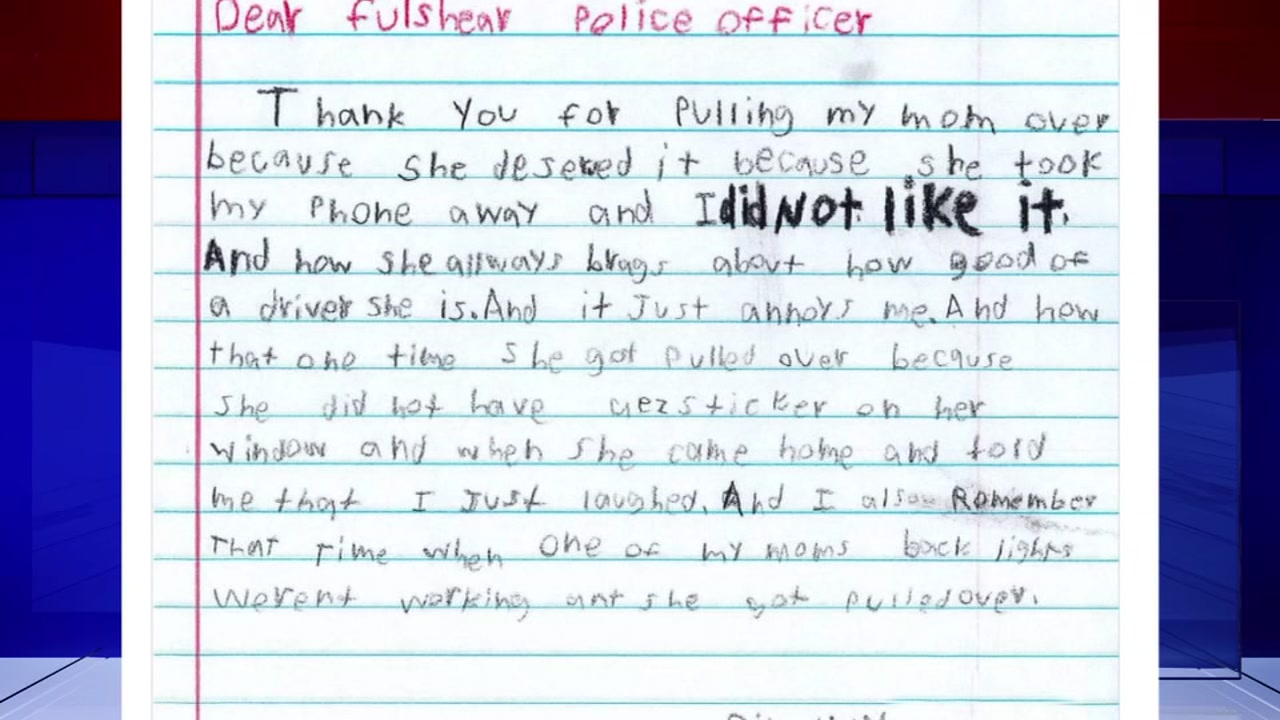 Dear fulshear Police officer
Thank You for Pulling my mom over
because she deserved it because she took
my Phone away and I did Not like it.
And how she allways brags about how good of
a driver she is. And it Just annoys me. And how
that one time She got Pulled over because
she did not have on her
window and when she came home and told
me that I Just laughed. And I also Remember
That Time when one of my moms back lights
werent working ant she got pulled over.